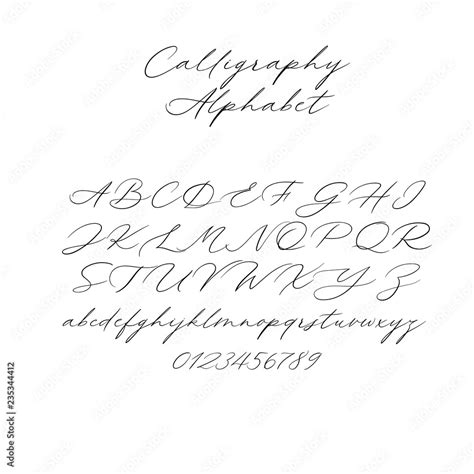 Calligraphy
Alphabet
A B C D E F G H I
J K L M N O P Q R
S T U V W X Y Z
abcdefghijklmnopqrstuvwxyz
0123456789
Adobe Stock | #235344412